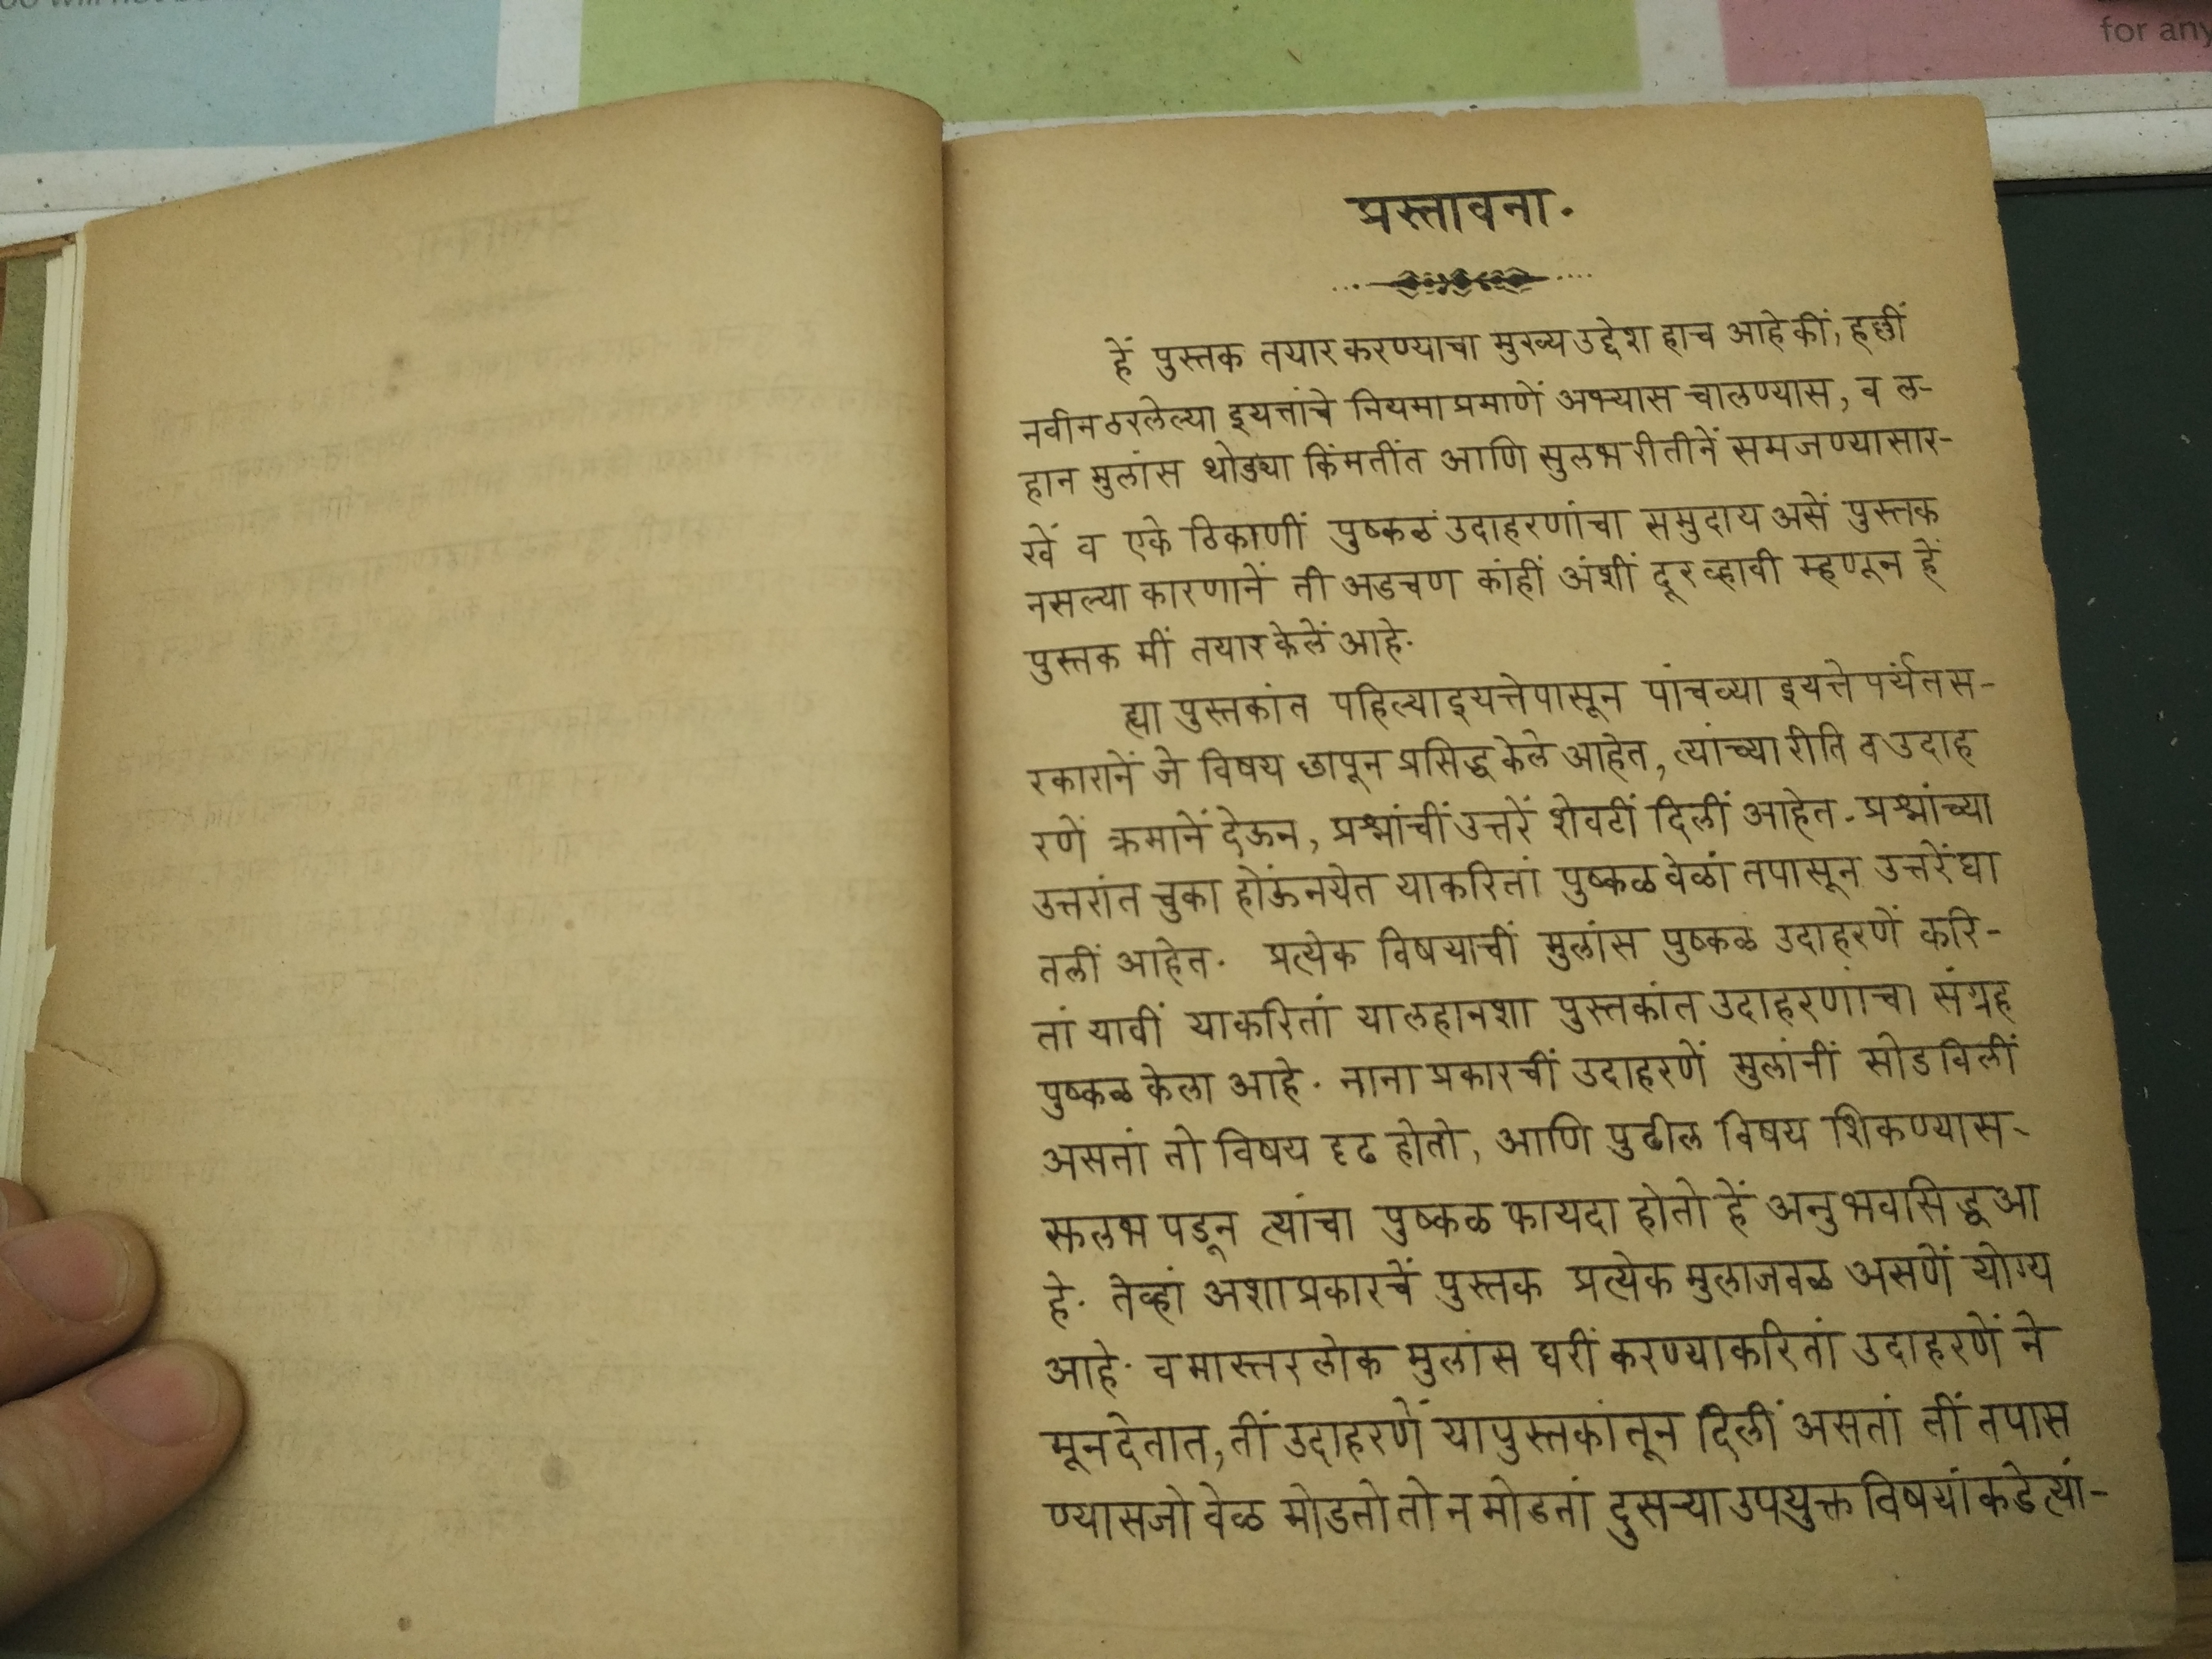 for any
प्रस्तावना.
हें पुस्तक तयार करण्याचा मुख्य उद्देश हाच आहे कीं, हल्लीं
नवीन ठरलेल्या इयत्तांचे नियमा प्रमाणें अभ्यास चालण्यास, व ल-
हान मुलांस थोड्या किंमतींत आणि सुलभ रीतीनें समजण्यासार-
खें व एके ठिकाणीं पुष्कळ उदाहरणांचा समुदाय असें पुस्तक
नसल्या कारणानें ती अडचण कांहीं अंशीं दूर व्हावी म्हणून हें
पुस्तक मीं तयार केलें आहे.
ह्या पुस्तकांत पहिल्या इयत्तेपासून पांचव्या इयत्ते पर्यंत स-
रकारानें जे विषय छापून प्रसिद्ध केले आहेत, त्यांच्या रीति व उदाह
रणें क्रमानें देऊन, प्रश्नांचीं उत्तरें शेवटीं दिलीं आहेत. प्रश्नांच्या
उत्तरांत चुका होऊं नयेत याकरितां पुष्कळ वेळां तपासून उत्तरें घा
तलीं आहेत. प्रत्येक विषयाचीं मुलांस पुष्कळ उदाहरणें करि-
तां यावीं याकरितां या लहानशा पुस्तकांत उदाहरणांचा संग्रह
पुष्कळ केला आहे. नाना प्रकारचीं उदाहरणें मुलांनीं सोडविलीं
असतां तो विषय दृढ होतो, आणि पुढील विषय शिकण्यास-
सुलभ पडून त्यांचा पुष्कळ फायदा होतो हें अनुभवसिद्ध आ
हे. तेव्हां अशा प्रकारचें पुस्तक प्रत्येक मुलाजवळ असणें योग्य
आहे. व मास्तर लोक मुलांस घरीं करण्याकरितां उदाहरणें ने
मून देतात, तीं उदाहरणें या पुस्तकांतून दिलीं असतां तीं तपास
ण्यास जो वेळ मोडतो तो न मोडतां दुसऱ्या उपयुक्त विषयांकडे त्यां-